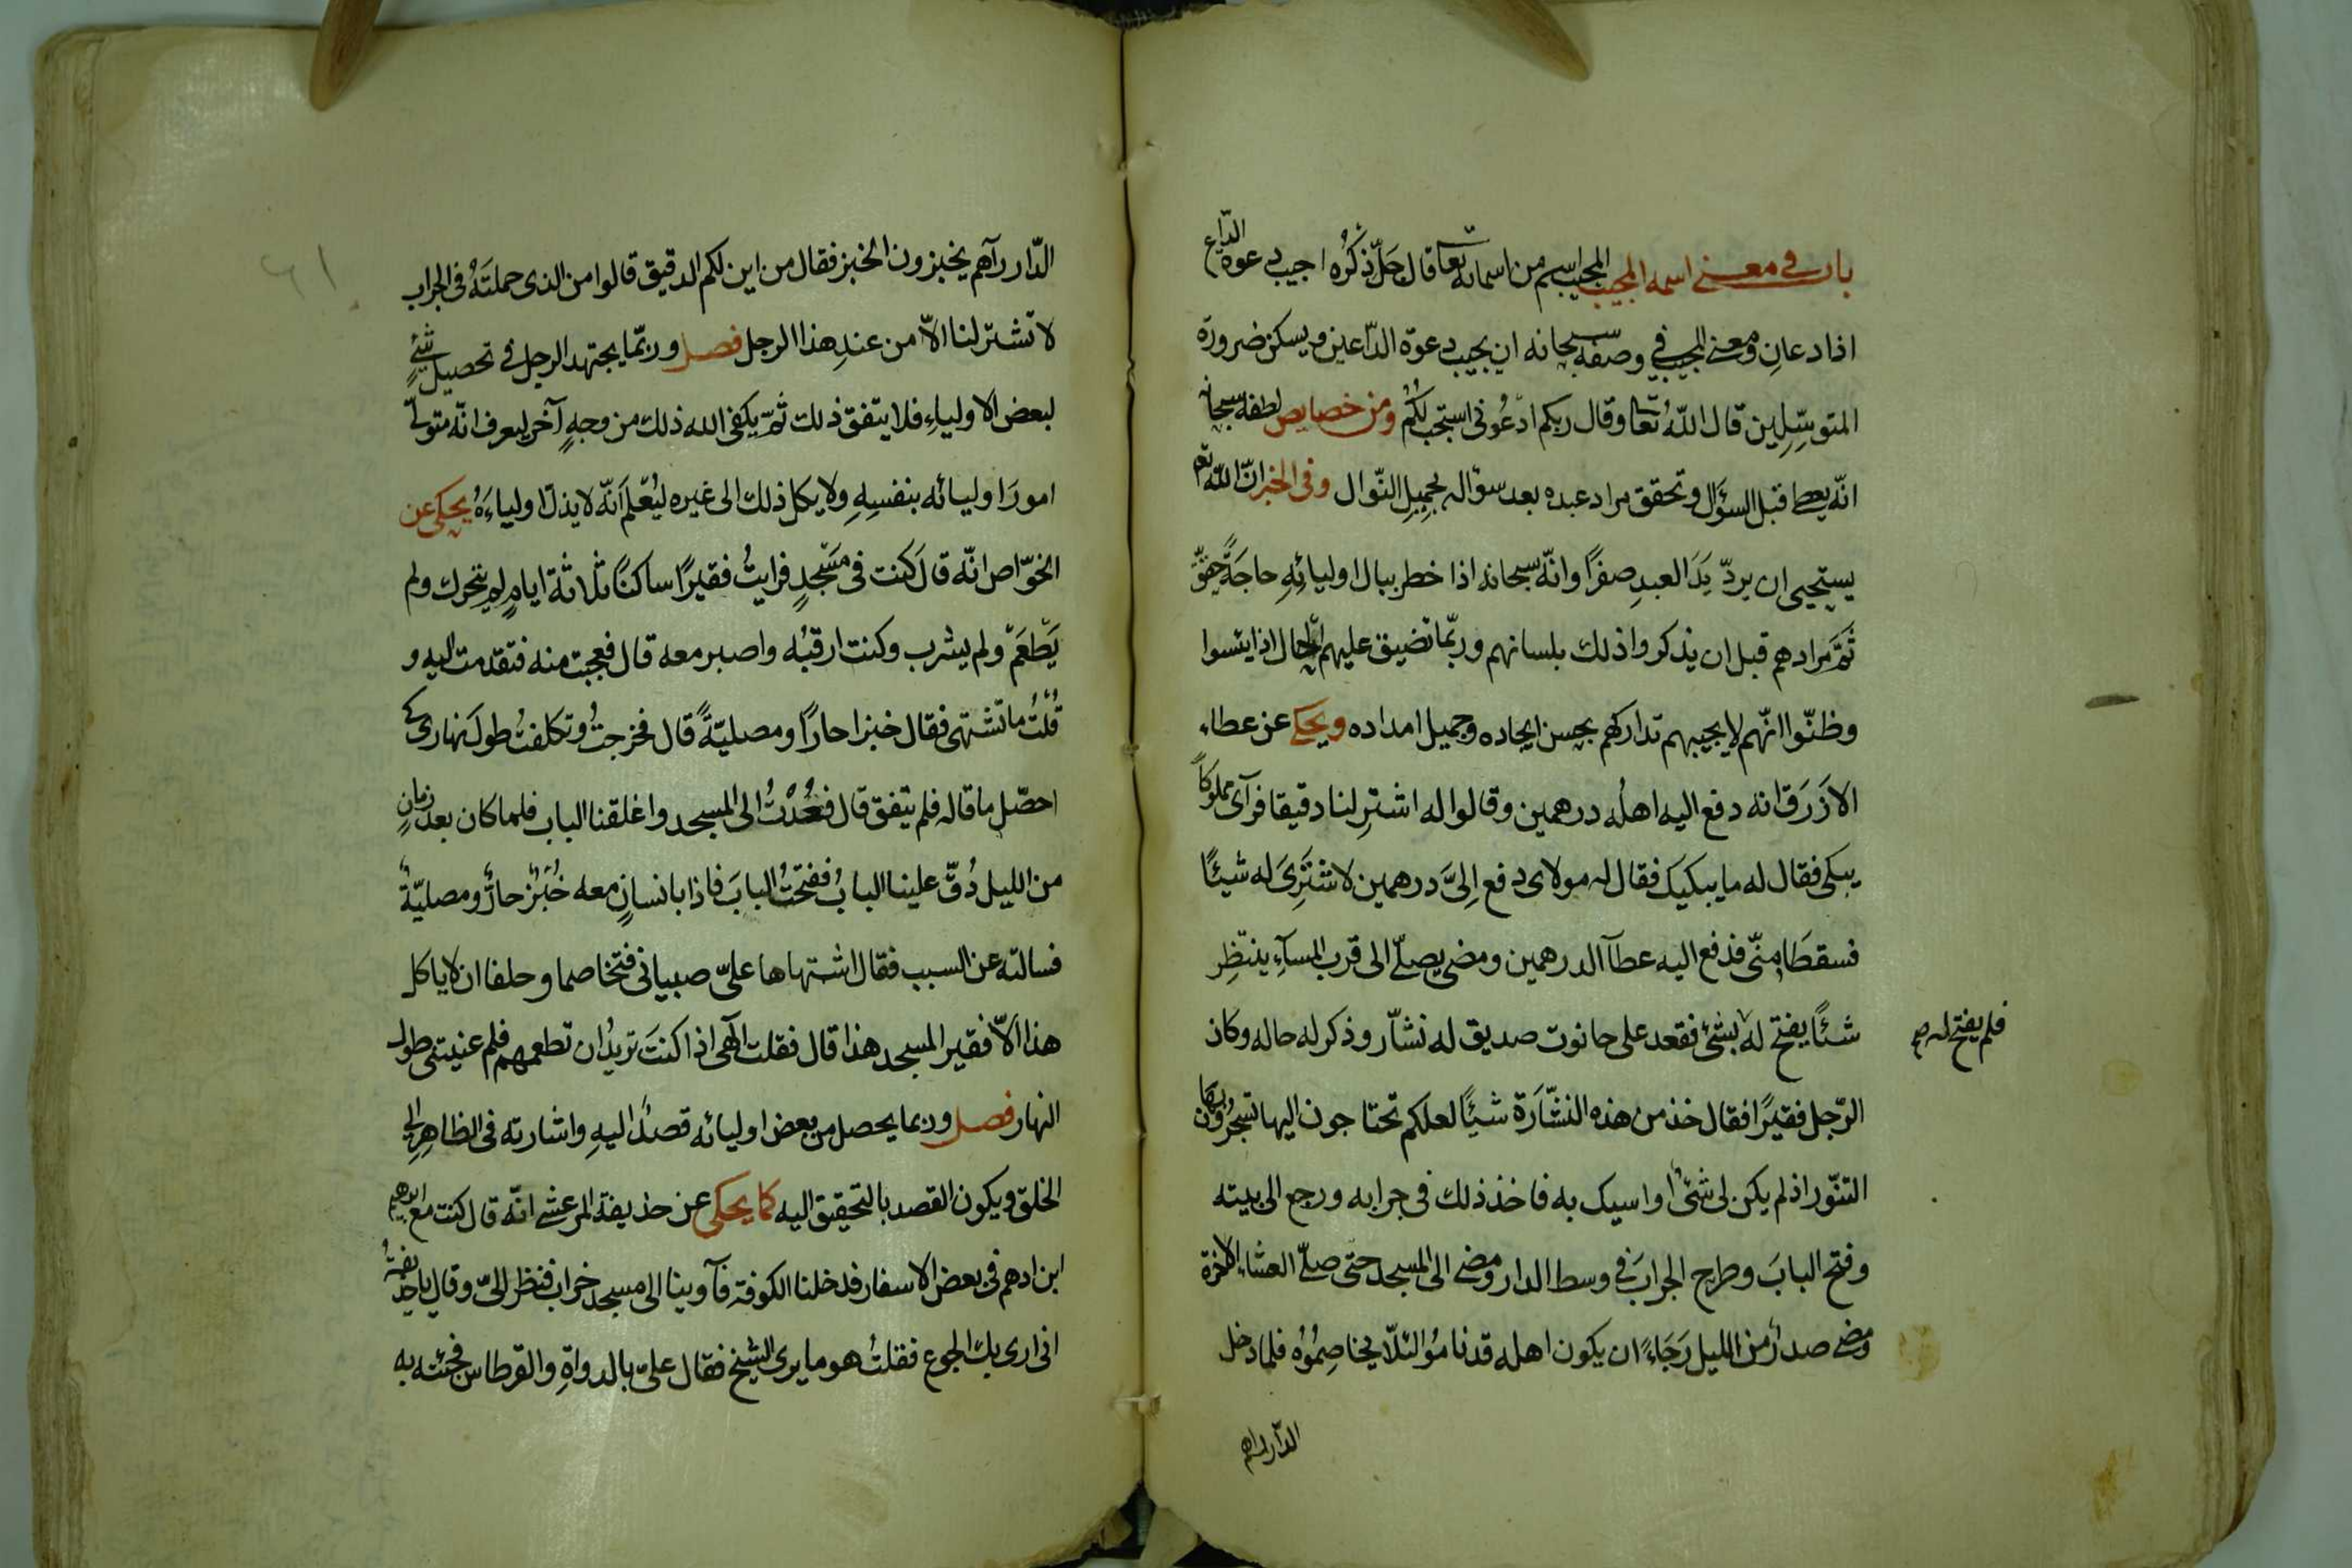 باب في معنى اسمه المجيب المجيب اسم من اسمائه تعا قال جَلّ ذكرُه اجيب دعوة الدّاع
اذا دعانِ ومعنى المجيب في وصفه سبحانه ان يجيب دعوة الدّاعين ويسكن ضرورة
المتوسِّلين قال اللّهُ تعا وقال ربكم ادعُوني استجب لكُم ومن خصايص لطفه سبحانه
انّه يعطى قبل السؤال وتحقق مراد عبده بعد سؤاله بجميل النّوال وفى الخبر انّ اللّه تع
يستحيى ان يردّ يَدَ العبدِ صفرًا وانّه سبحانه اذا خطر ببال اوليائِهِ حاجَةً حقّق
ثَمَّ مرادهم قبل ان يذكروا ذلك بلسانهم وربّما تضيق عليهم الحال اذا ايئسوا
وظنّوا انّهم لا يجيبهم تداركهم بحسن ايجاده وجميل امداده ويحكى عن عطاء
الازَرَق انه دفع اليه اهلُه درهمين وقالوا له اشترِ لنا دقيقا فرآى مملوكًا
يبكى فقال له ما يبكيك فقال له مولاى دفع اِلىَّ درهمين لاشترِىَ له شيئًا
فسقطَا منّى فدفع اليه عطآ الدرهمين ومضى يصلّى الى قرب المسآءِ ينتظِر
شئًا يفتح له بشئ فقعد على حانوت صديق له نشّار وذكر له حاله وكان
فلم يفتح له صح
الرّجل فقيرًا فقال خذ من هذه النشّارَة شيئًا لعلكم تحتاجون اليها تسجرُون بها
التنّور اذ لم يكن لى شئٌ اواسيك به فاخذ ذلك فى جرابه ورجع الى بيته
وفتح البابَ وطرح الجرابَ فى وسط الدار ومضى الى المسجد حتى صلّى العشاء الاخرة
ومضى صدرٌ من الليل رَجَاءً ان يكون اهله قد نامُوا لئلّا يخاصِمُوُه فلما دخل
الدّار رآهم
الدّار رآهم يخبزون الخبز فقال من اين لكم الدقيق قالوا من الذى حملتَهُ فى الجراب
لا تشتر لنا الاّ من عندِ هذا الرجل فصل وربّما يجتهد الرجل فى تحصيل شئٍ
لبعض الاولياءِ فلا يتفق ذلك ثمّ يكفى الله ذلك من وجهٍ آخر ليعرف انّه متولّى
امورَ اوليائه بنفسِهِ ولا يكل ذلك الى غيره ليُعْلَم انّه لا يذلّ اولياءَهُ يحكى عن
الخوّاص انّه قال كنت فى مسْجدٍ فرايتُ فقيرًا ساكنًا ثلاثة ايامٍ لم يتحرك ولم
يَطْعَمْ ولم يشرب وكنت ارقبُه واصبر معه قال فعجبت منه فتقدمت اليه و
قُلْتُ ما تشتهى فقال خبزا حارًّا ومصليّةً قال فخرجتُ وتكلفتُ طول نهارى كى
احصّل ما قاله فلم يتفق قال فعُدْتُ الى المسجد واغلقنا الباب فلما كان بعد زمانٍ
من الليل دُقَّ علينا البابُ ففتحتُ البابَ فاذا بانسانٍ معه خُبْزٌ حارٌّ ومصليّةٌ
فسالته عن السبب فقال اشتهاها علىّ صبيانى فتخاصما وحلفا ان لا ياكل
هذا الّا فقير المسجد هذا قال فقلت الٓهى اذا كنتَ تريدُ ان تطعمهم فلم عنيتنى طول
النهار فصل وربما يحصل من بعض اوليائه قصدٌ اليهِ واشارته فى الظاهِر الى
الخلق ويكون القصد بالتحقيق اليه كما يحكى عن حذيفة المرعشى انّه قال كنت مع ابرهيم
ابن ادهم فى بعض الاسفار فدخلنا الكوفة فآوينا الى مسجد خراب فنظر الىّ وقال يا حذيفةُ
انى ارى بك الجوع فقلتُ هو ما يرى الشيخ فقال علىّ بالدواةِ والقرطاس فجئته به